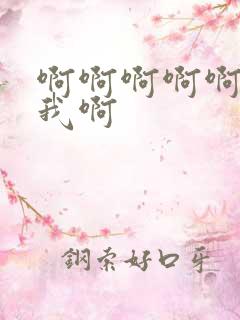 啊啊啊啊啊
我啊
钢索好口牙